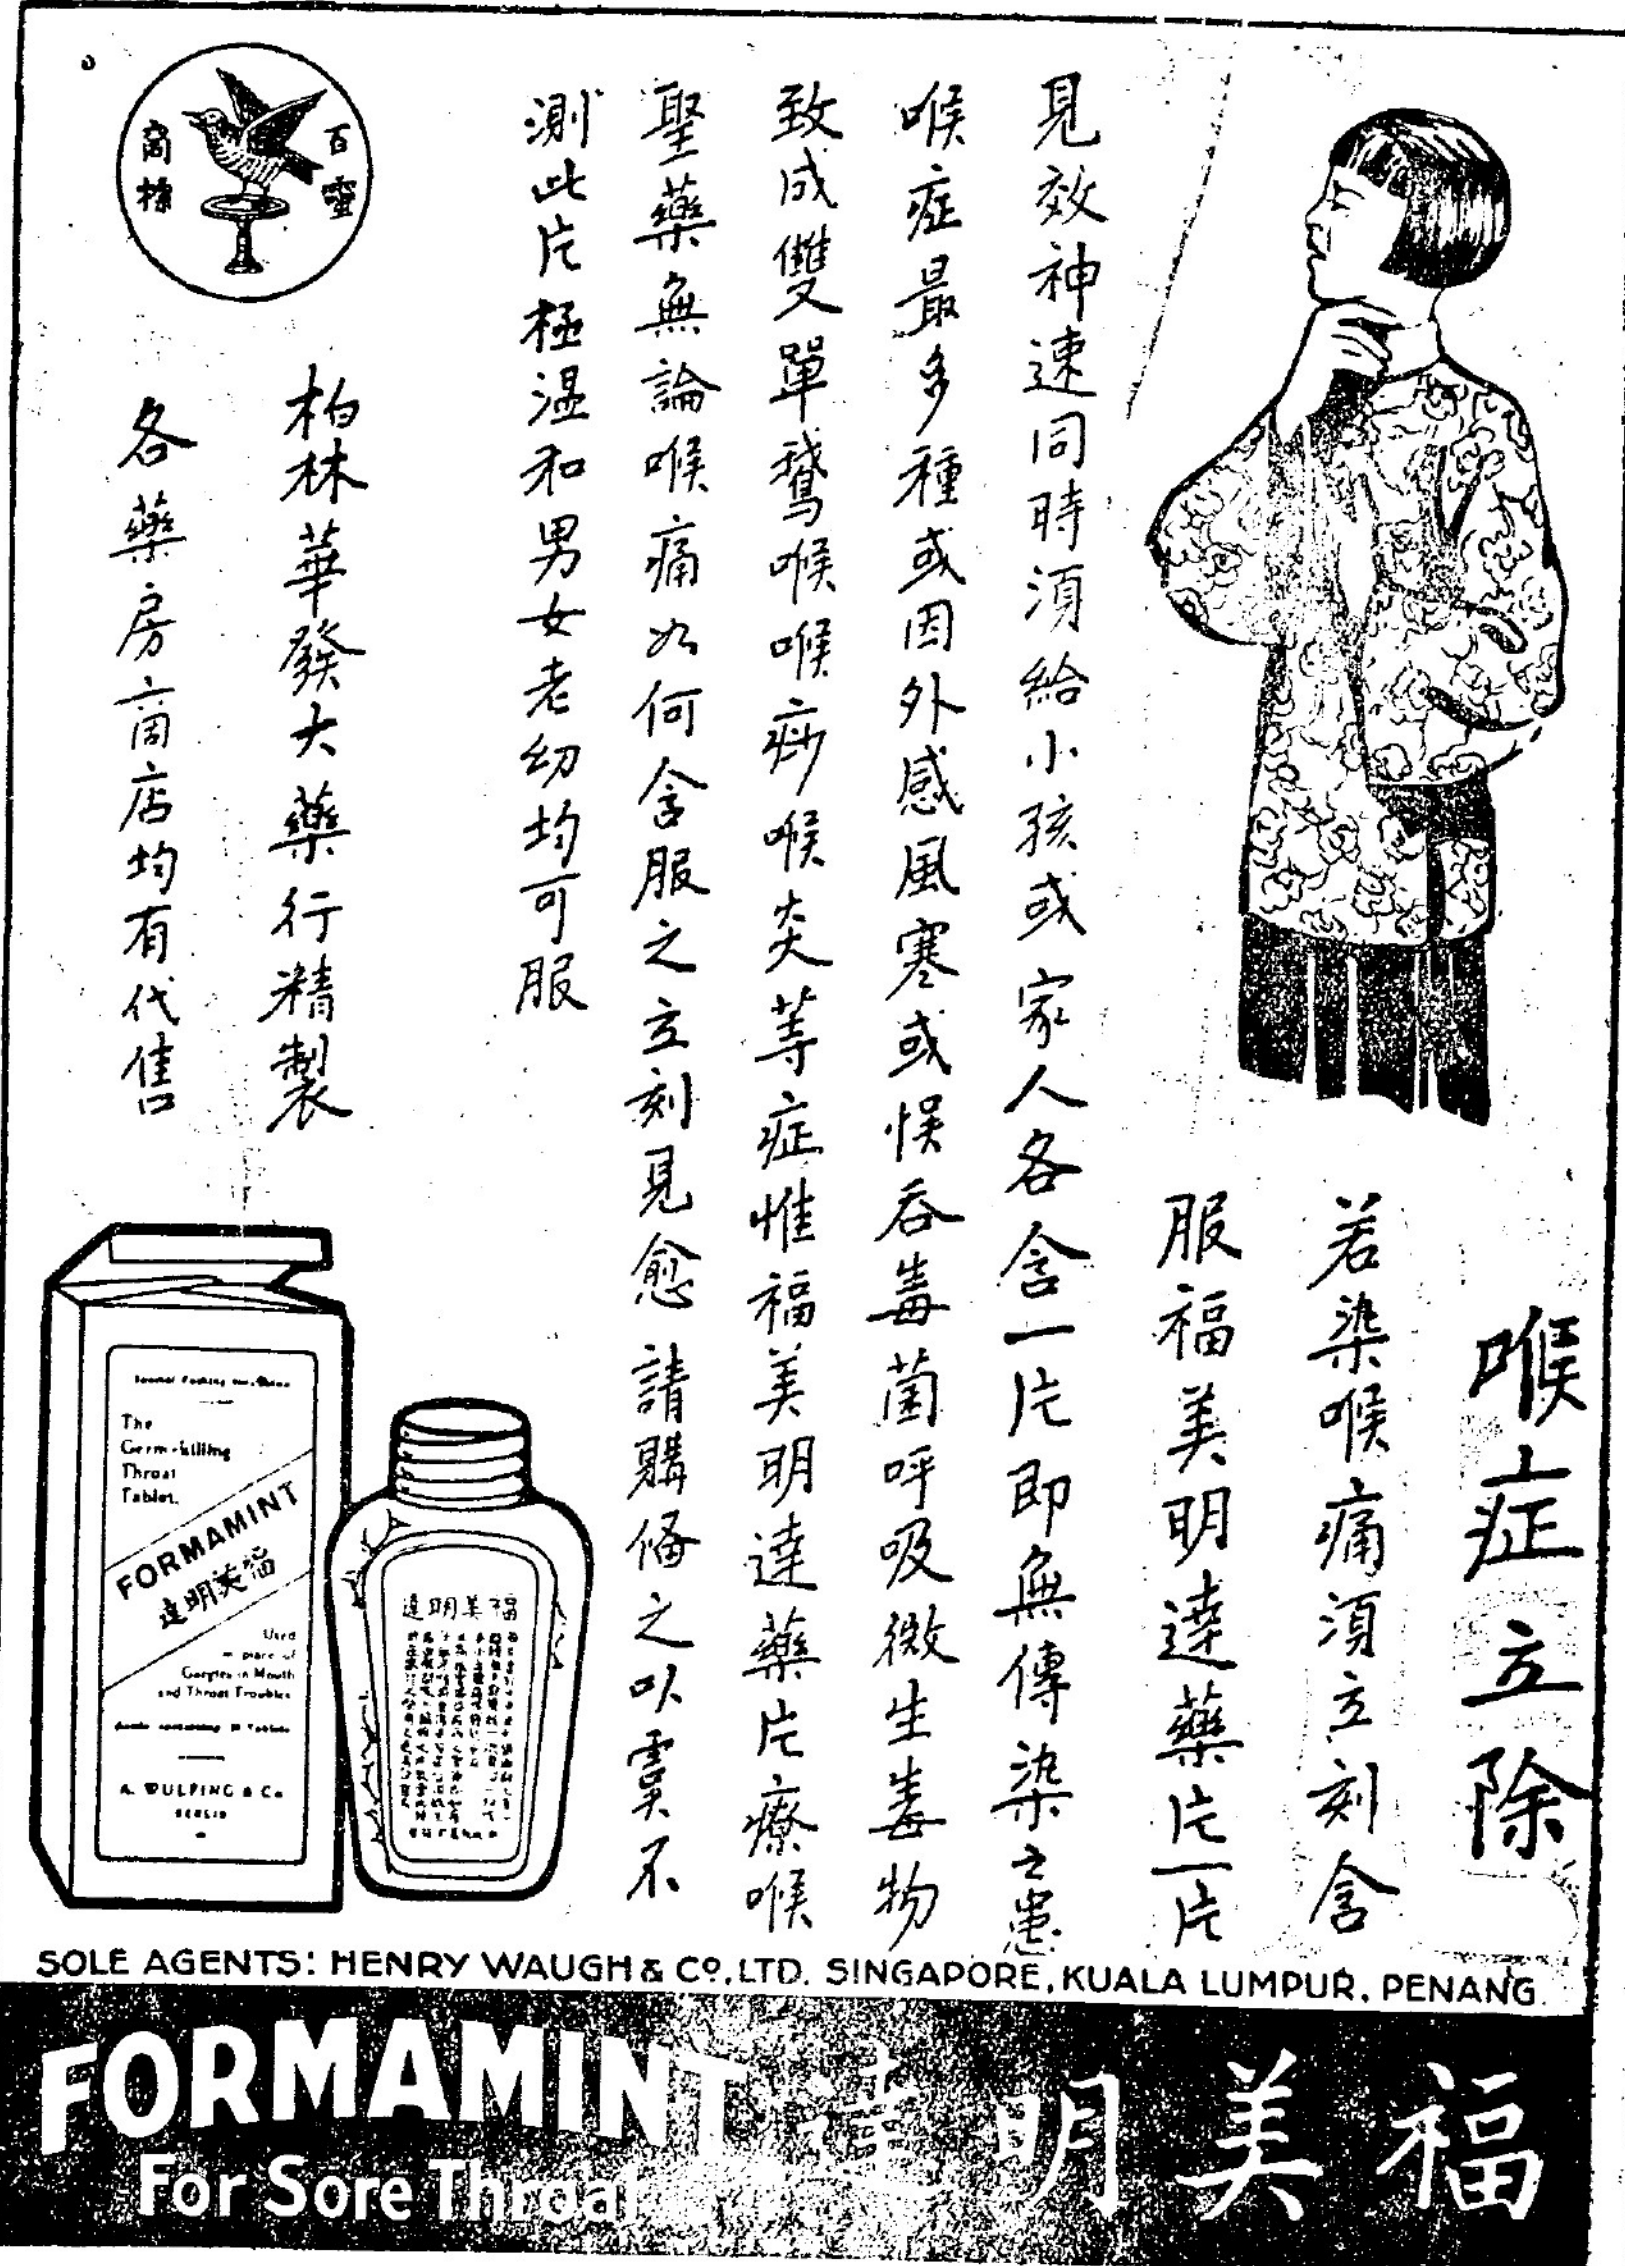 喉症立除
若染喉痛須立刻含
服福美明達藥片一片
見效神速同時須給小孩或家人各含一片即無傳染之患
喉症最多種或因外感風寒或悮吞毒菌呼吸微生毒物
致成雙單鵞喉喉痧喉炎等症惟福美明達藥片療喉
聖藥無論喉痛如何含服之立刻見愈請購俻之以虞不
測此片極温和男女老幼均可服
柏林華發大藥行精製
各藥房商店均有代售
百靈
商標
The
Germ-killing
Throat
Tablet.
FORMAMINT
達明美福
Used
in place of
Gargles in Mouth
and Throat Troubles
A. WULFING & Co
BERLIN
達明美福
SOLE AGENTS: HENRY WAUGH & Co., LTD. SINGAPORE, KUALA LUMPUR, PENANG.
FORMAMINT
For Sore Throat
達明美福